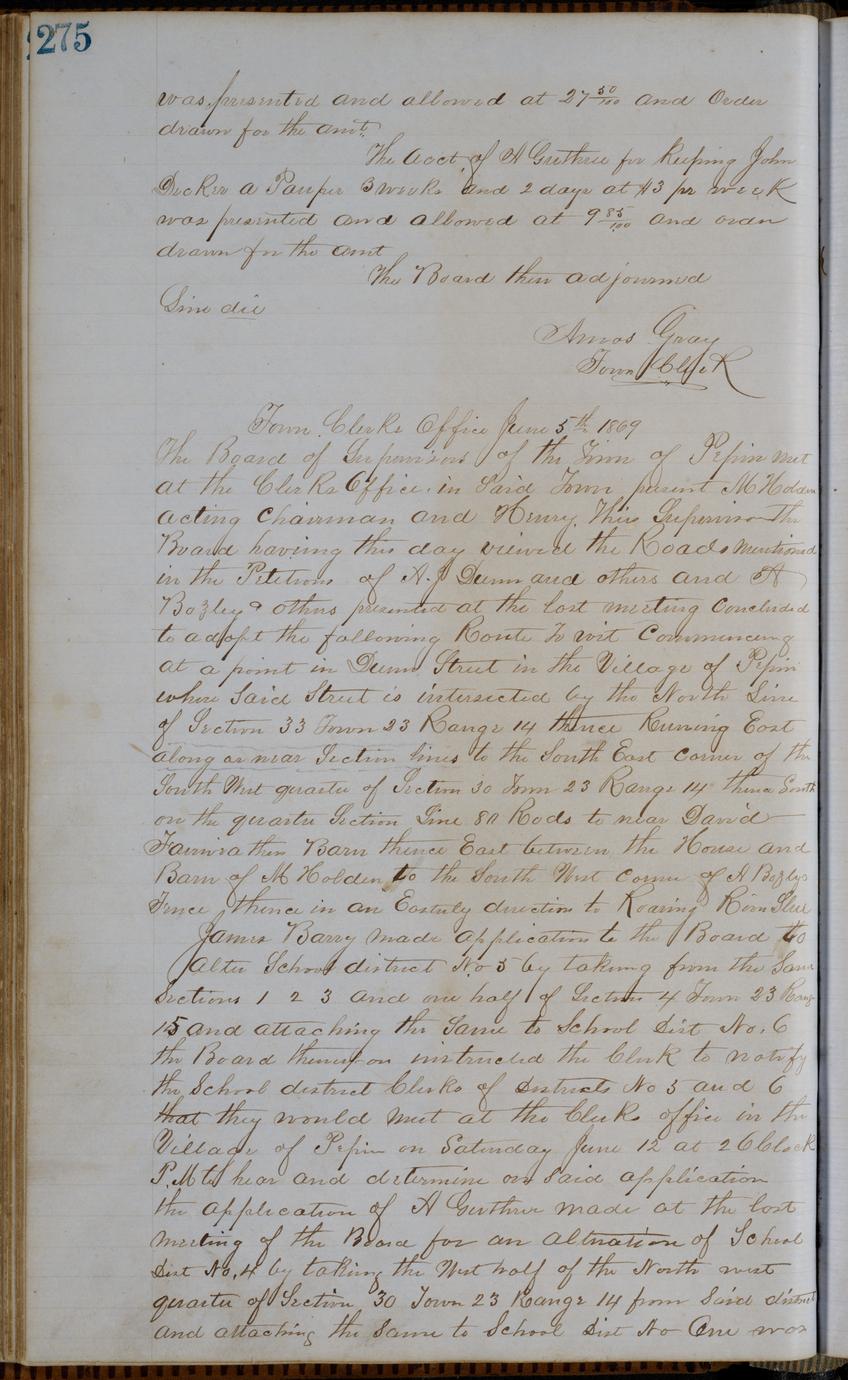 275
was presented and allowed at 27 50/100 and Order
drawn for the amt.
The acct of A Guthrie for keeping John
Decker a Pauper 3 weeks and 2 days at $3 pr week
was presented and allowed at 9 85/100 and order
drawn for the amt
The Board then adjourned
Sine die
Amos Gray
Town Clerk
Town Clerks Office June 5th 1869
The Board of Supervisors of the Town of Pepin met
at the Clerks Office in Said Town present M Holden
acting Chairman and Henry Supervisor The
Board having this day viewed the Roads mentioned
in the Petitions of A.J Dunn and others and A
Bozley & others presented at the last meeting Concluded
to adopt the following Route To wit Commencing
at a point in Dunn Street in the Village of Pepin
where Said Street is intersected by the North Line
of Section 33 Town 23 Range 14 thence Running East
along or near Section lines to the South East corner of the
South West quarter of Section 30 Town 23 Range 14 thence South
on the quarter Section Line 80 Rods to near David
Barn thence East between the House and
Barn of M Holden to the South West corner of A Bozlys
Fence thence in an Easterly direction to Roaring
James Barry made application to the Board to
alter School district No 5 by taking from the Same
Sections 1 2 3 and one half of Section 4 Town 23 Range
15 and attaching the Same to School Dist No. 6
the Board thereupon instructed the Clerk to notify
the School district Clerks of Districts No 5 and 6
that they would meet at the Clerks office in the
Village of Pepin on Saturday June 12 at 2 Oclock
P.M to hear and determine on Said application
the application of A Guthrie made at the last
meeting of the Board for an alteration of School
Dist No. 4 by taking the West half of the North west
quarter of Section 30 Town 23 Range 14 from Said district
and attaching the Same to School Dist No One was